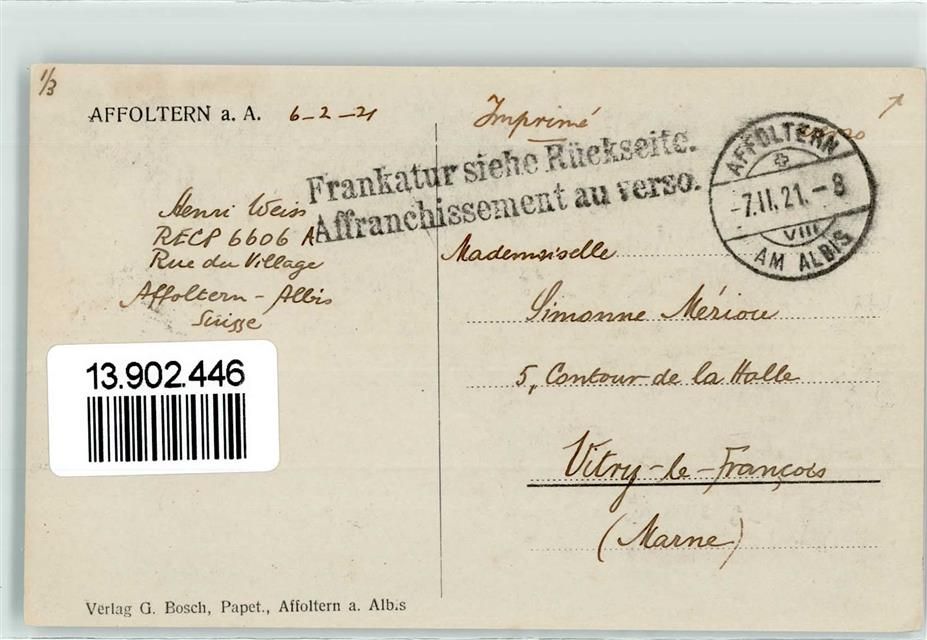 1/3
AFFOLTERN a. A. 6-2-21
Imprimé
Frankatur siehe Rückseite.
Affranchissement au verso.
AFFOLTERN
-7.II.21.-8
VIII
AM ALBIS
Henri Weiss
RECP 6606 A
Rue du Village
Affoltern-Albis
Suisse
Mademoiselle
Simonne Mériou
5, Contour de la Halle
Vitry-le-François
(Marne)
13.902.446
Verlag G. Bosch, Papet., Affoltern a. Alb.s